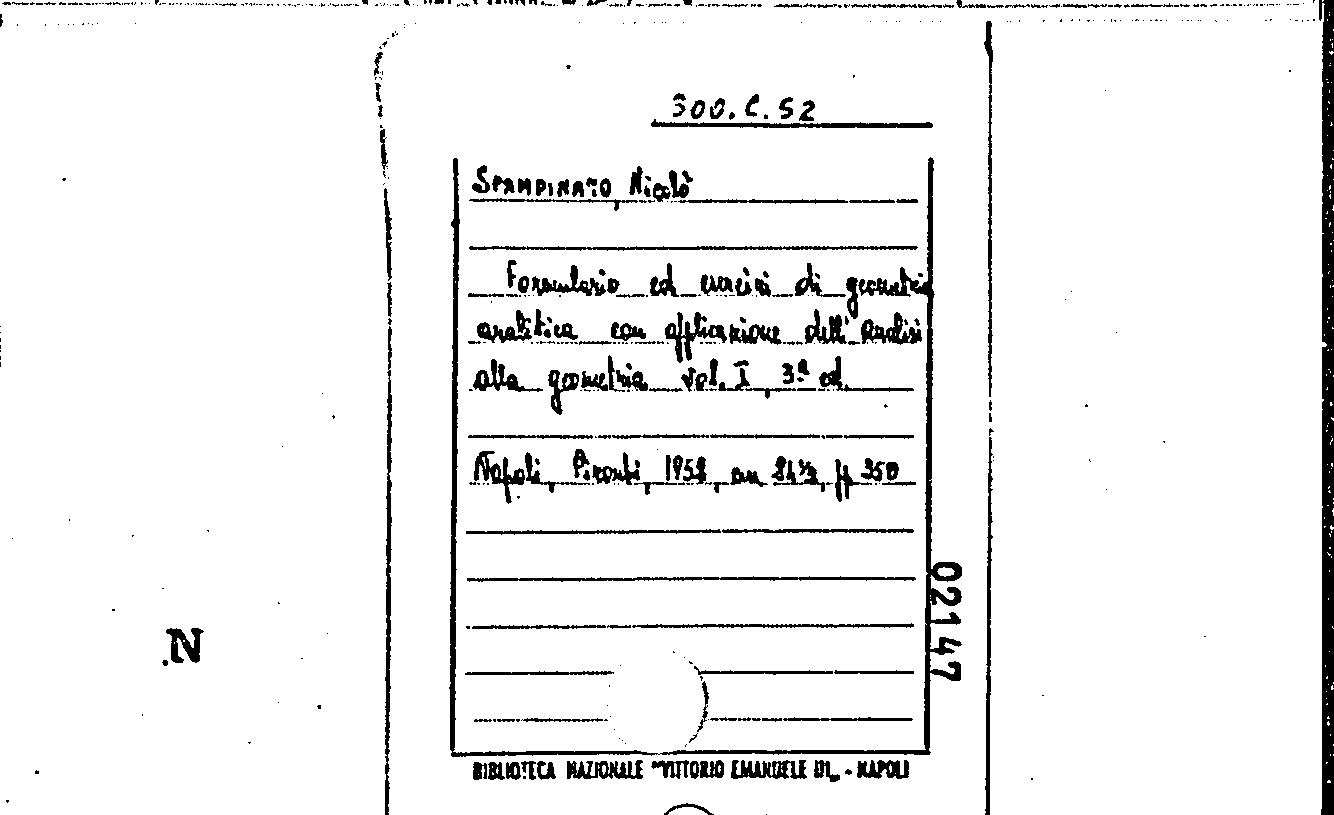 300.C.52
SPAMPINATO, Nicolò
Formulario ed esercizi di geometria
analitica con applicazione dell'analisi
alla geometria vol. I, 3ª ed.
Napoli, Pironti, 1952, cm 24½, pp 350
02147
N
BIBLIOTECA NAZIONALE "VITTORIO EMANUELE III„ - NAPOLI